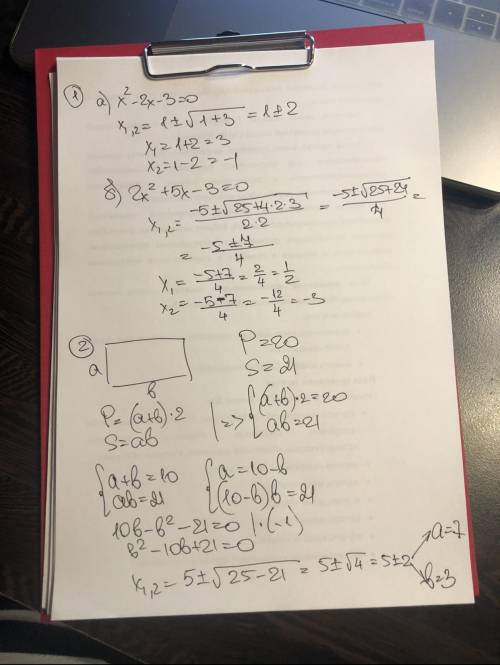 ① а) x²-2x-3=0
x₁,₂= 1±√1+3 = 1±2
x₁=1+2=3
x₂=1-2=-1
б) 2x²+5x-3=0
x₁,₂= (-5±√25+4·2·3)/(2·2) = (-5±√25+24)/4 =
= (-5±7)/4
x₁= (-5+7)/4 = 2/4 = 1/2
x₂= (-5-7)/4 = -12/4 = -3
②
a
b
P=20
S=21
P=(a+b)·2
S=ab
|=> {(a+b)·2=20
ab=21
{a+b=10
ab=21
{a=10-b
(10-b)b=21
10b-b²-21=0 |·(-1)
b²-10b+21=0
x₁,₂= 5±√25-21 = 5±√4 = 5±2
a=7
b=3